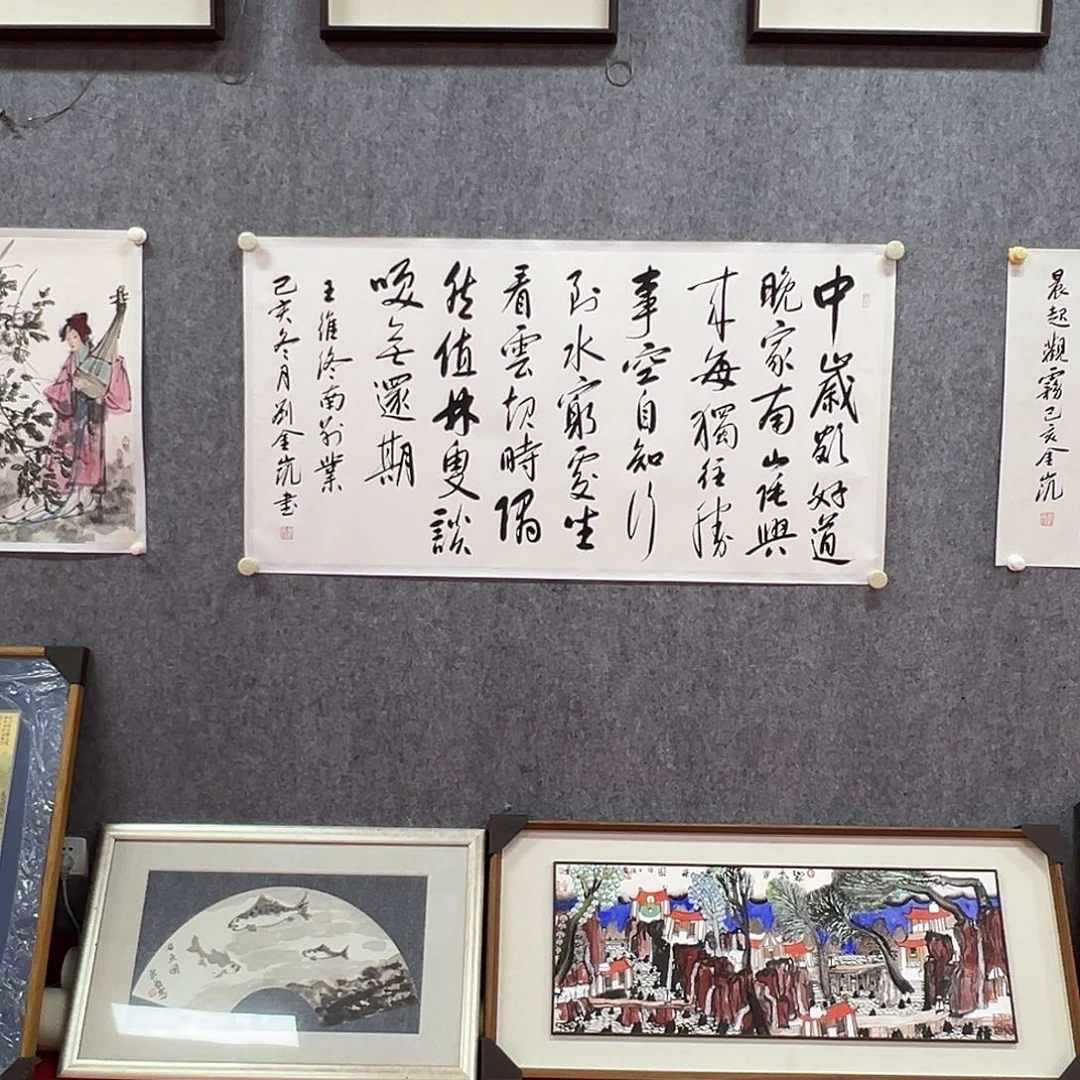 晨起觀霧己亥金
中歲頗好道
晚家南山陲興
来每獨往勝
事空自知行
到水窮處坐
看雲起時偶
然值林叟談
咲無還期
王維終南别業
己亥冬月劉金書